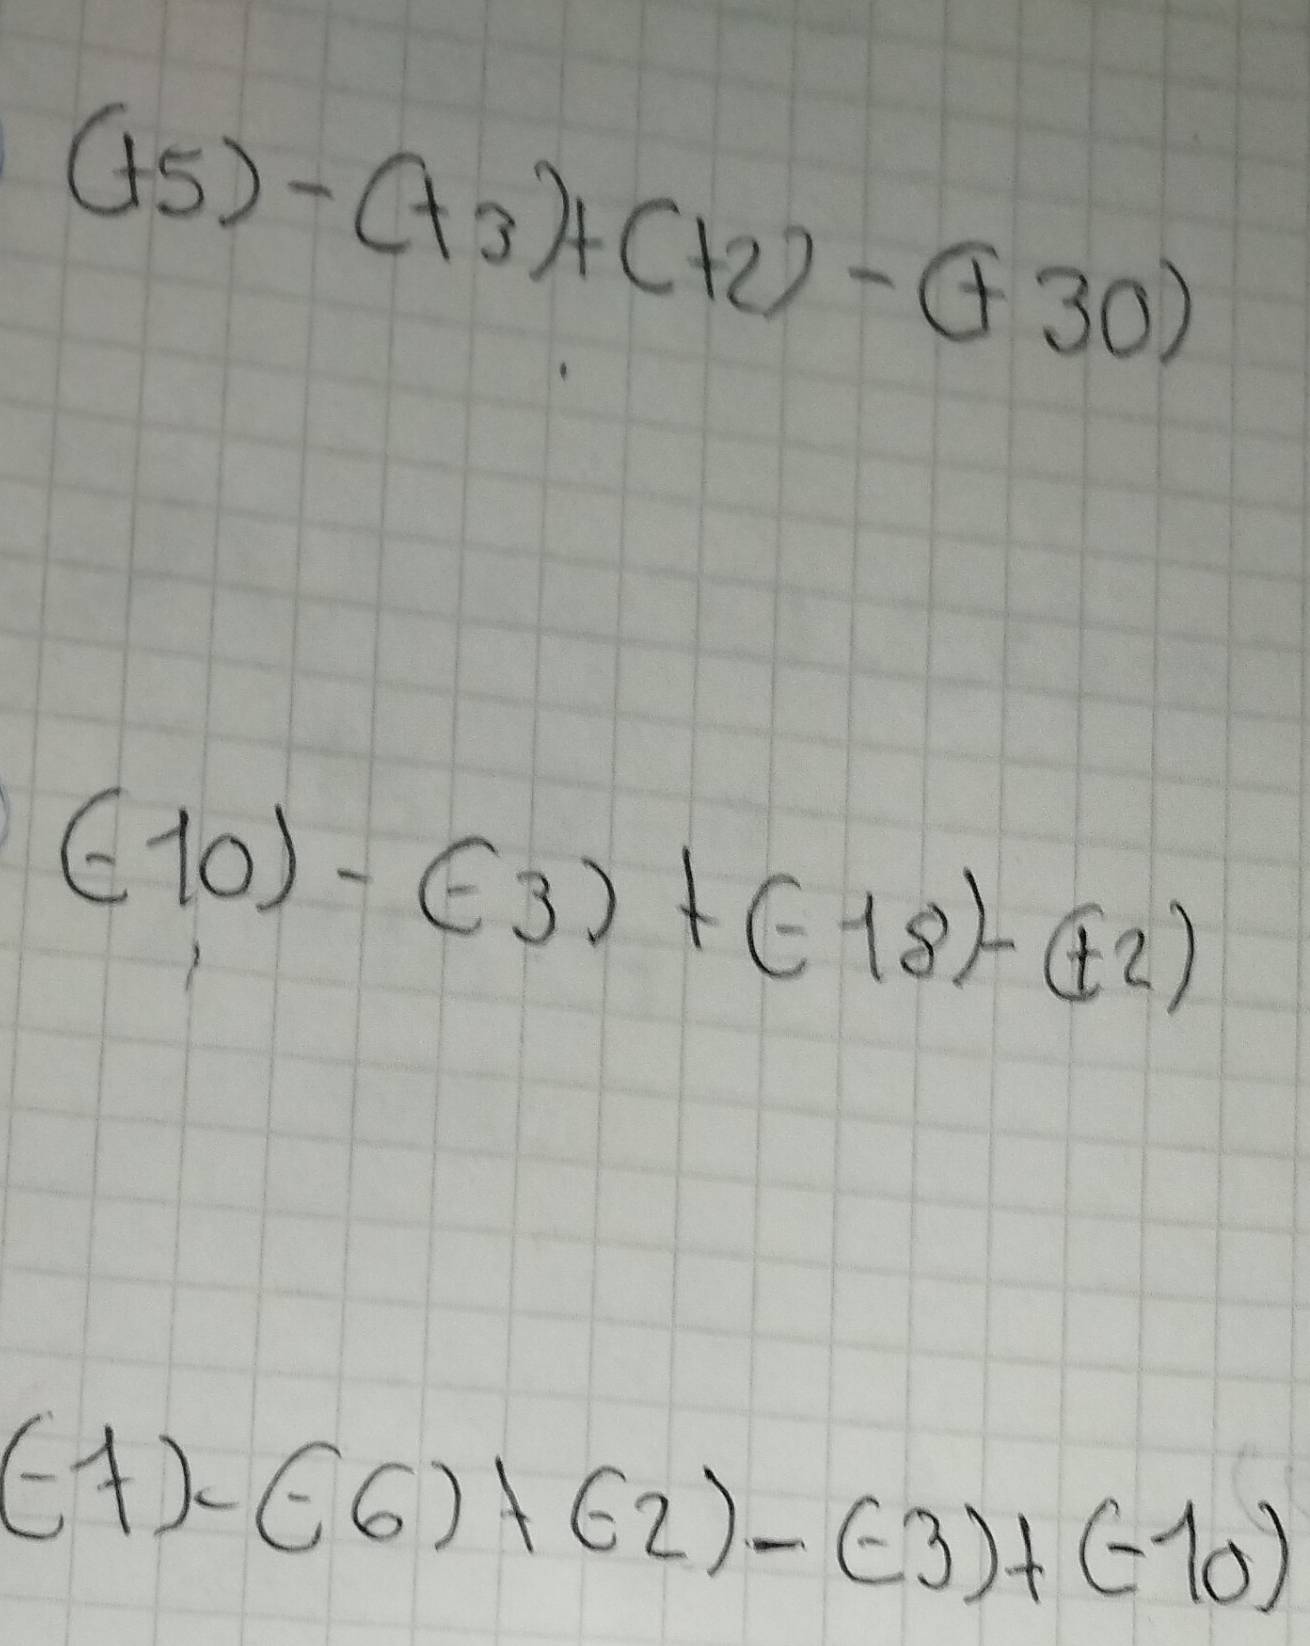 (+5) - (+3) + (+2) - (+30)
(-10) - (-3) + (-18) - (+2)
(-7) - (-6) + (-2) - (-3) + (-10)